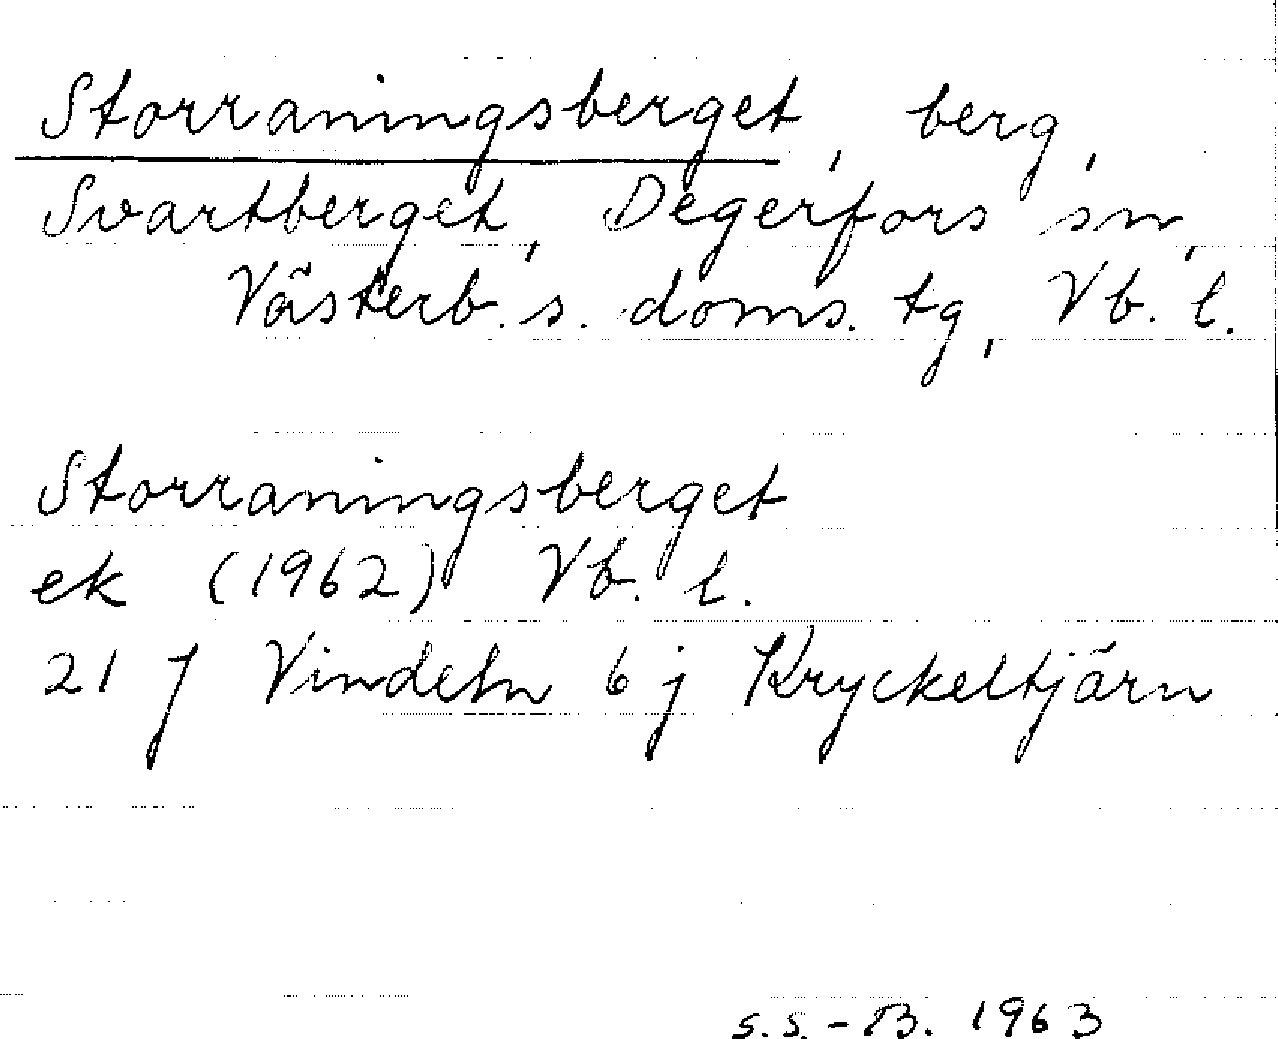 Storraningsberget, berg,
Svartberget, Degerfors sn,
Västerb. s. doms. tg, Vb. l.
Storraningsberget
ek (1962) Vb. l.
21 J Vindeln 6 j Kryckeltjärn
S.S.-B. 1963